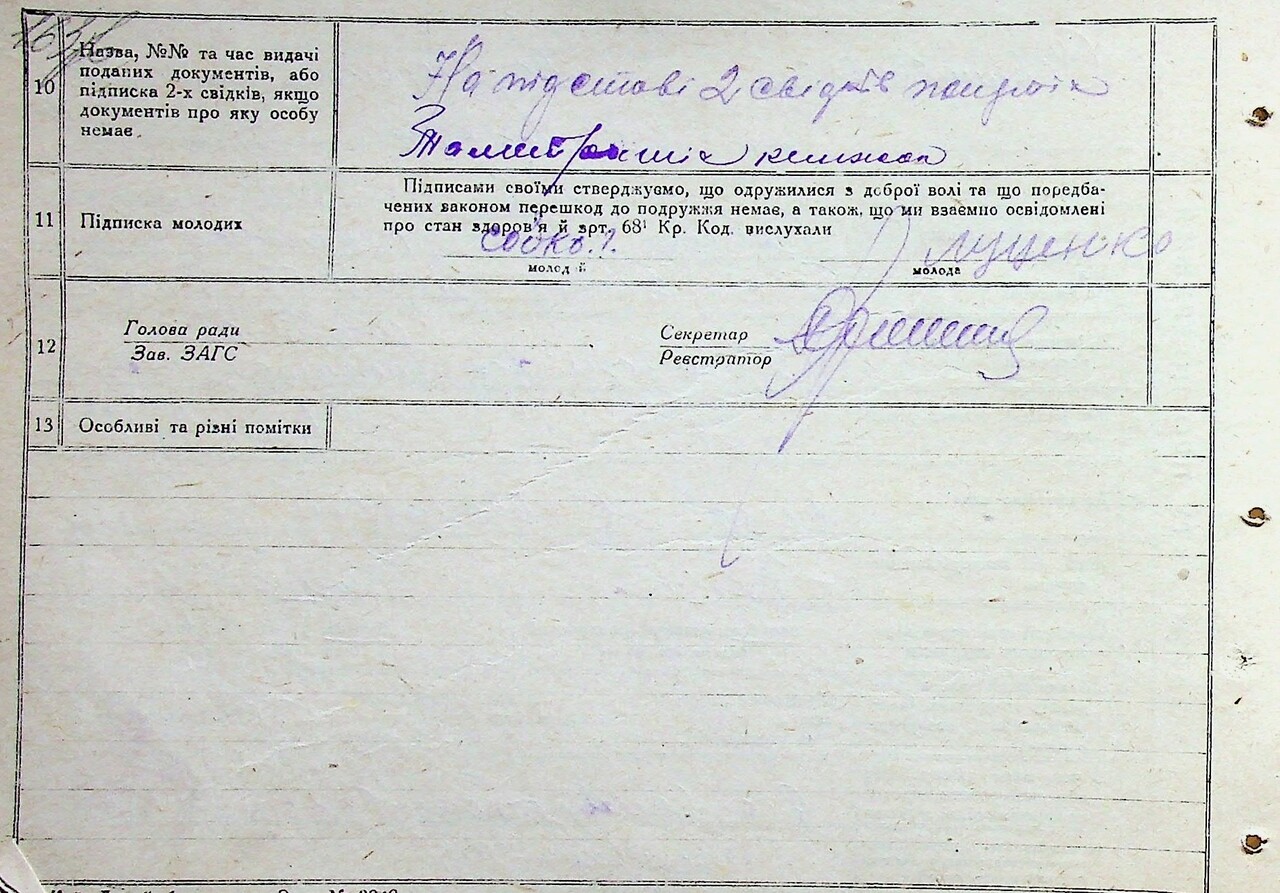 Назва, №№ та час видачі
поданих документів, або
10 підписка 2-х свідків, якщо
документів про яку особу
немає.
На підставі 2 свідків
11 Підписка молодих
Підписами своїми стверджуємо, що одружилися з доброї волі та що поредба-
чених законом перешкод до подружжя немає, а також, що ми взаємно освідомлені
про стан здоров'я й арт. 68¹ Кр. Код. вислухали
Сойко. Луценко
молодий молода
12 Голова ради Секретар
Зав. ЗАГС Реєстратор
13 Особливі та різні помітки